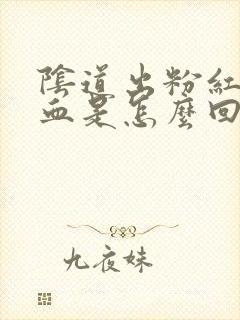 陰道出粉紅
血是怎麼回
九夜妹